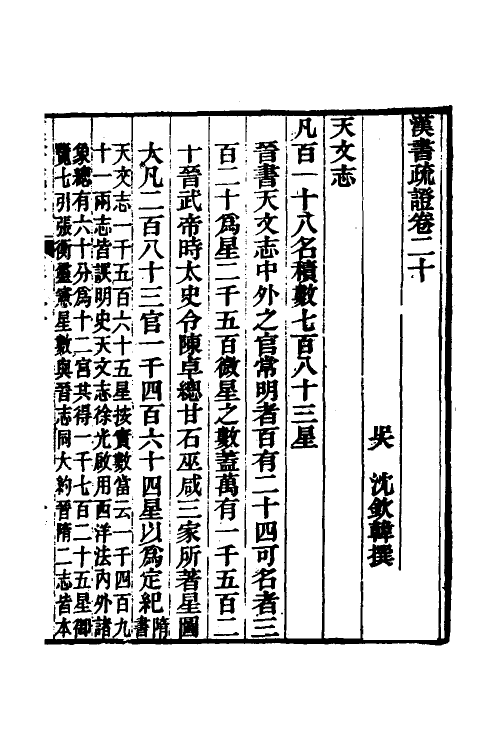 漢書疏證卷二十
吳 沈欽韓撰
天文志
凡百一十八名積數七百八十三星
晉書天文志中外之官常明者百有二十四可名者三
百二十爲星二千五百微星之數蓋萬有一千五百二
十晉武帝時太史令陳卓總甘石巫咸三家所著星圖
大凡二百八十三官一千四百六十四星以爲定紀隋書
天文志一千五百六十五星按實數當云一千四百九
十一兩志皆誤明史天文志徐光啟用西洋法內外諸
象總有六十分爲十二宮其得一千七百二十五星御
覽七引張衡靈憲星數與晉志同大約晉隋二志皆本